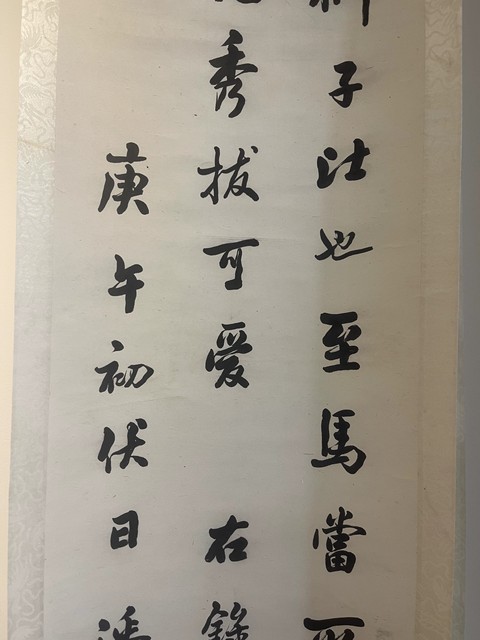 子法也至馬當
秀拔可愛 右錄
庚午初伏日